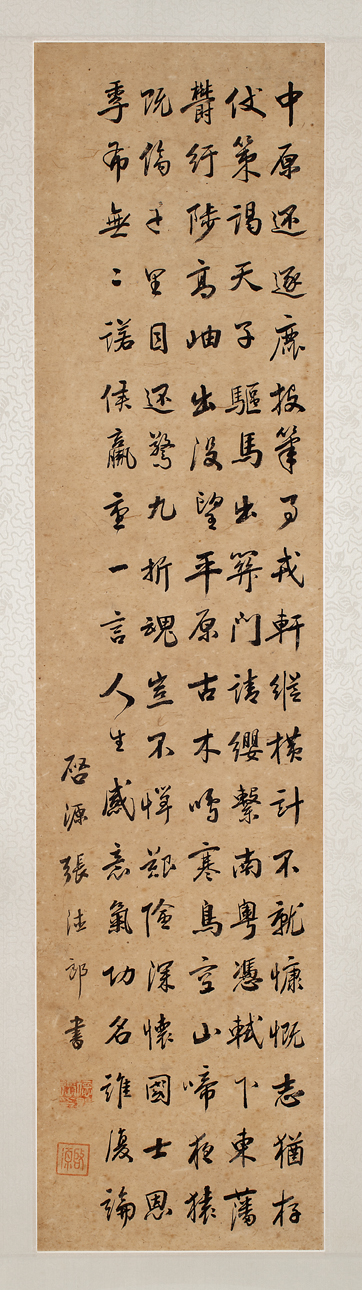 中原还逐鹿投筆事戎軒縱橫計不就慷慨志猶存
仗策謁天子驅馬出關門請纓繫南粵憑軾下東藩
鬱紆陟高岫出没望平原古木鳴寒鳥空山啼夜猿
既傷千里目还驚九折魂豈不憚艱險深懷國士恩
季布無二諾侯嬴重一言人生感意氣功名誰復論
启源張法郎書